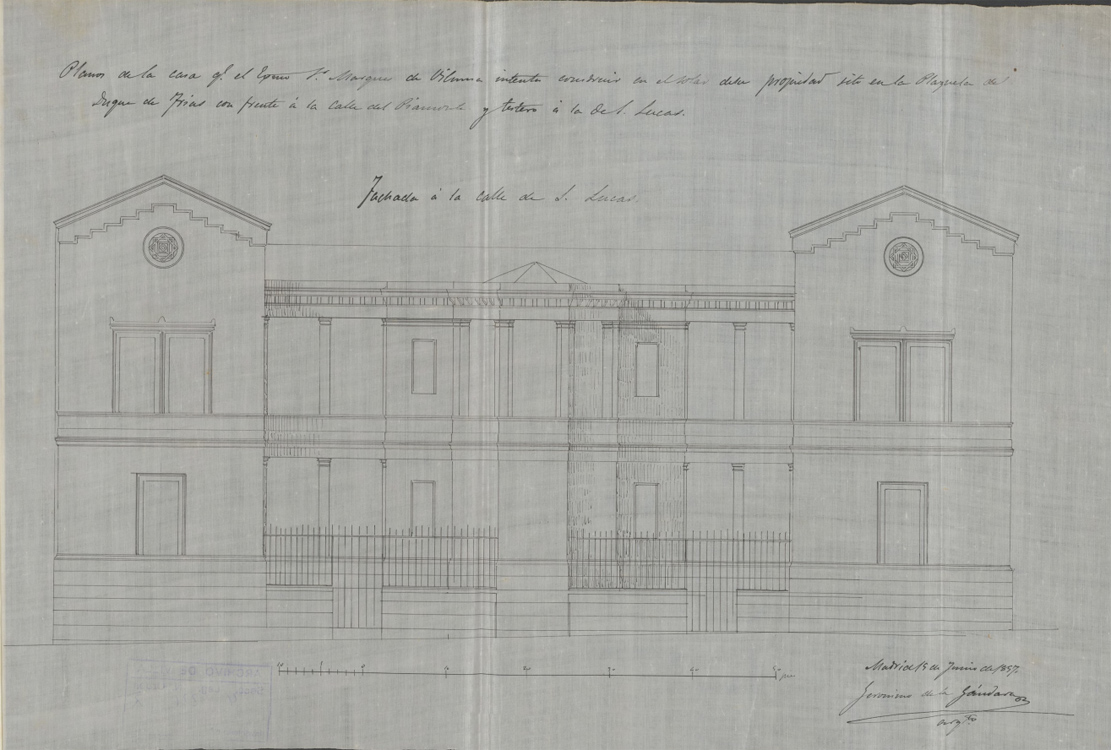 Planos de la casa q.e el Exmo Sr Marques de Viluma intenta construir en el solar de su propiedad sito en la Plazuela del
Duque de Frias con frente á la calle del Piamonte y testero á la de S. Lucas.
Fachada á la calle de S. Lucas.
Madrid 15 de Junio de 1857.
Geronimo de la Gándara
arq.to